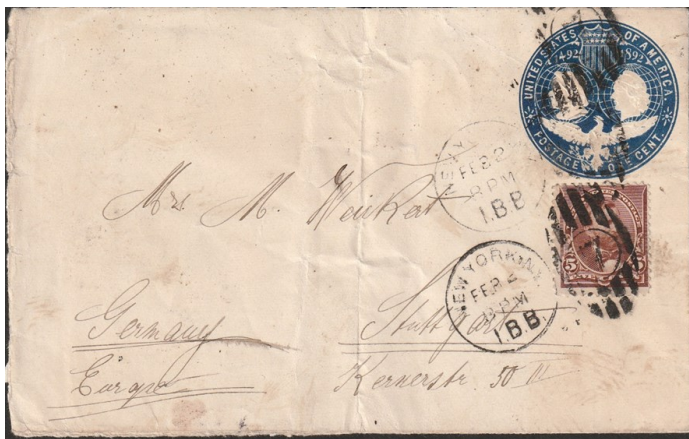 UNITED STATES OF AMERICA.
1492 1892
POSTAGE ONE CENT.
FEB 2
8 PM
I.B.B.
Mrs. M.
NEW YORK, N.Y.
FEB
8 PM
I.B.B.
5 5
7
Germany
Stuttgart
Europa
Kernerstr. 50 III